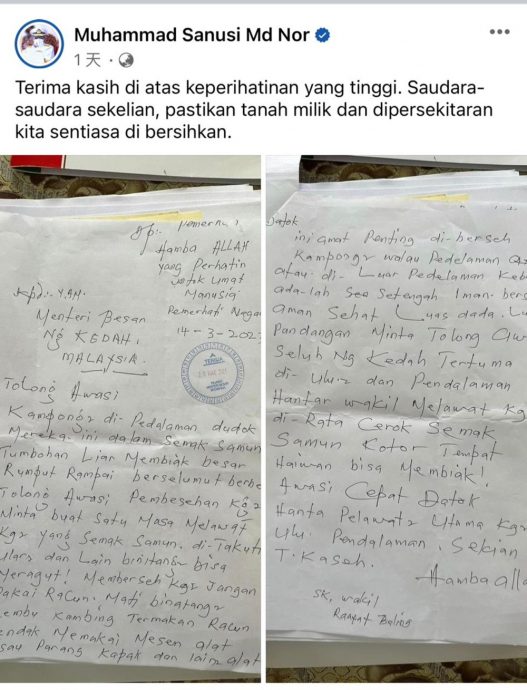 Muhammad Sanusi Md Nor
1天
Terima kasih di atas keperihatinan yang tinggi. Saudara-
saudara sekelian, pastikan tanah milik dan dipersekitaran
kita sentiasa di bersihkan.
Hamba ALLAH
yang Perhatin
untok Umat
Manusia
Pemerhati Negara
14-3-202
Kpd:- Y.A.B.
Menteri Besar
Ng KEDAH.
MALAYSIA.
TERIMA
Tolong Awasi
Kampong2 di-Pedalaman dudok
Mereka ini dalam Semak Samun
Tumbohan Liar Membiak besar
Rumput Rampai berselumut
Tolong Awasi Pembesehan Kg2
Minta buat Satu Masa Melawat
Kg2 yang Semak Samun. di-Takuti
Ulars dan Lain binitang2 bisa
Meragut! Memberseh Kg2 Jangan
Pakai Racun. Mati binatang2
Lembu Kambing Termakan Racun
Hendak Memakai Mesen alat
Parang Kapak dan lain2 alat
Datok
ini amat Penting di-berseh
Kampong2 walau Pedelaman
atau di-Luar Pedelaman
ada-lah Setengah Iman
aman Sehat Luas dada.
Pandangan Minta Tolong
Seluh Ng Kedah Tertuma
di-Ulu2 dan Pendalaman
Hantar wakil Melawat Kg
di-Rata Cerok Semak
Samun Kotor Tempat
Haiwan bisa Membiak!
Awasi Cepat Datok
Hanta Pelawat2 Utama Kg2
Ulu Pendalaman. Sekian
T. Kaseh.
Hamba
SK, wakil
Rakyat Baling